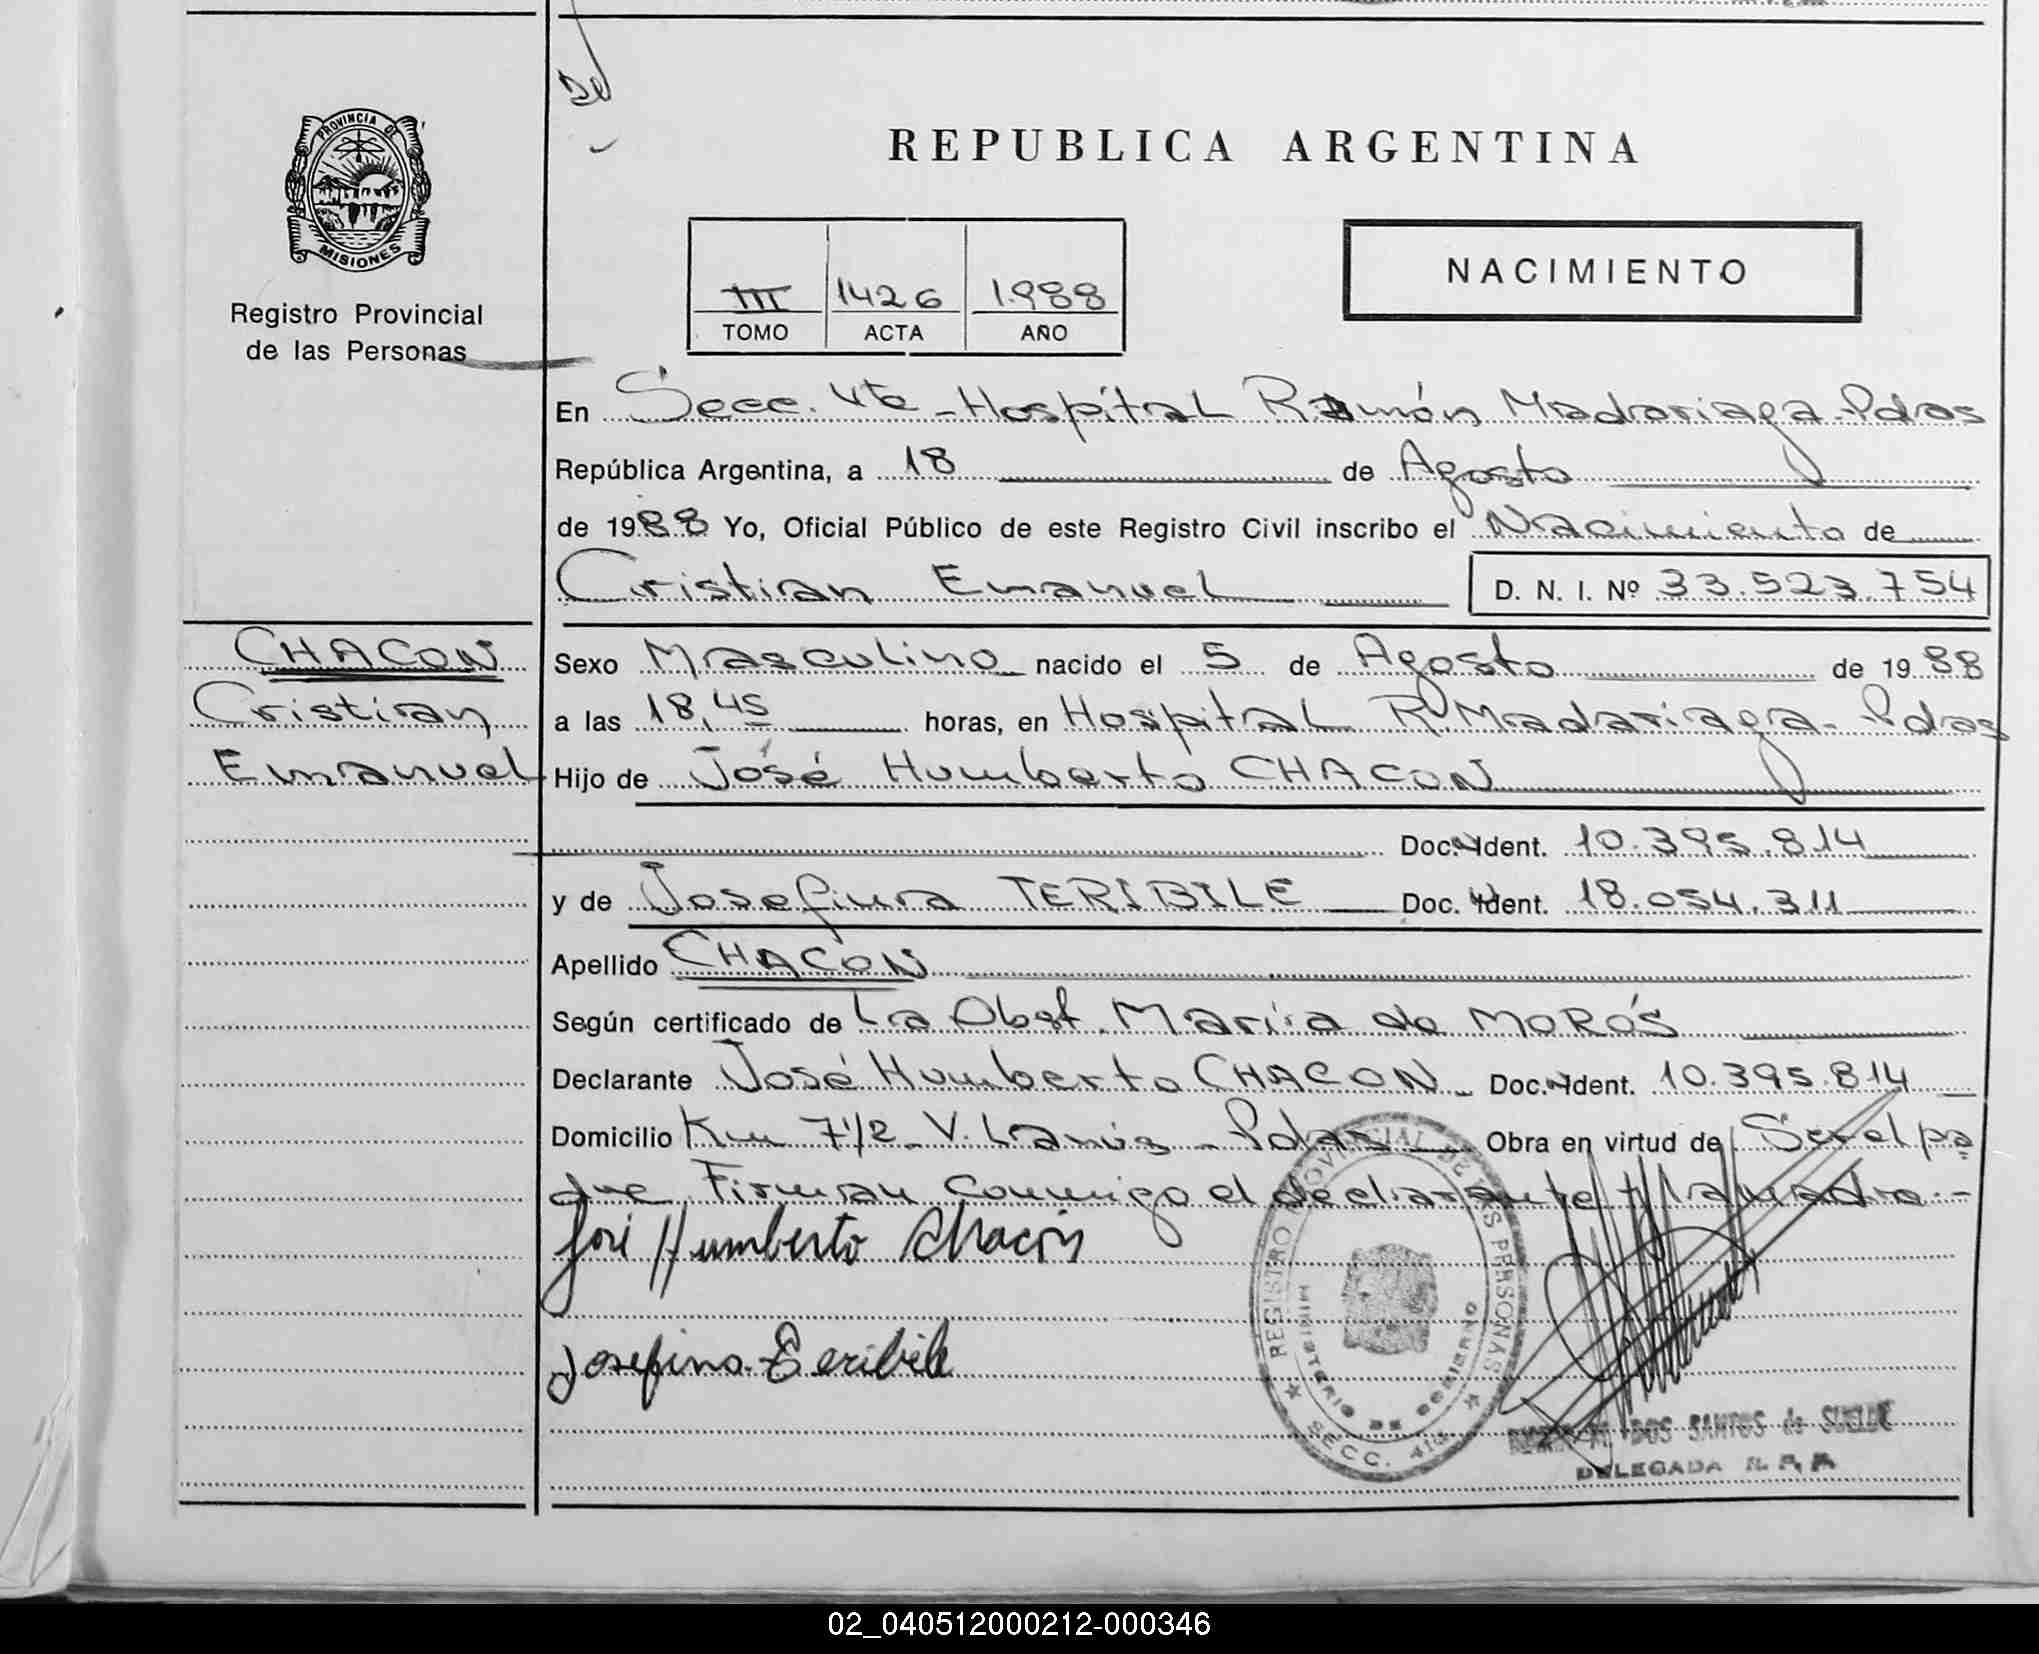 REPUBLICA ARGENTINA
PROVINCIA DE
MISIONES
Registro Provincial
de las Personas
III 1426 1.988
TOMO ACTA AÑO
NACIMIENTO
En Secc. Vta - Hospital Ramón Madariaga - Pdas
República Argentina, a 18 de Agosto
de 1988 Yo, Oficial Público de este Registro Civil inscribo el Nacimiento de
Cristian Emanuel D. N. I. Nº 33.523.754
CHACON
Cristian
Emanuel
Sexo Masculino nacido el 5 de Agosto de 1988
a las 18,45 horas, en Hospital R. Madariaga - Pdas
Hijo de José Humberto CHACON
Doc. Ident. 10.395.814
y de Josefina TERIBILE Doc. Ident. 18.054.311
Apellido CHACON
Según certificado de La Obst. María de MOROS
Declarante José Humberto CHACON Doc. Ident. 10.395.814
Domicilio Km 7 1/2 - V. Lanús - Pdas Obra en virtud de Ser el pa
dre Firman conmigo el declarante y la madre.-
José Humberto Chacón
Josefina Teribile
REGISTRO PROVINCIAL DE LAS PERSONAS
MINISTERIO DE GOBIERNO
SECC.
DOS SANTOS de
DELEGADA R. P. P.
02_040512000212-000346